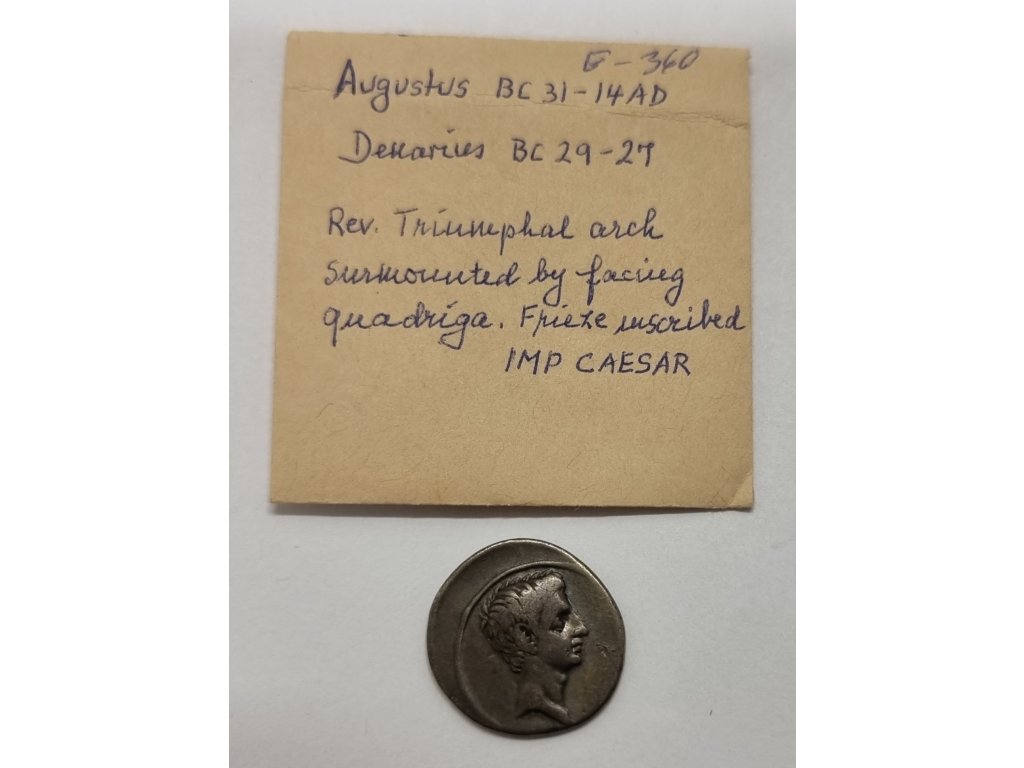 E-360
Augustus BC 31-14AD
Denarius BC 29-27
Rev. Triumphal arch
surmounted by facing
quadriga. Frieze inscribed
IMP CAESAR